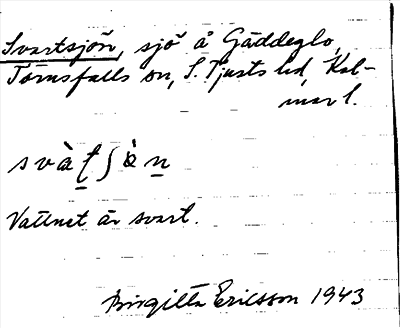 Svartsjön, sjö å Gäddeglo,
Törnsfalls sn, S. Tjusts hd, Kal-
mar l.
svàṯʃòṉ
Vattnet är svart.
Birgitta Ericsson 1943